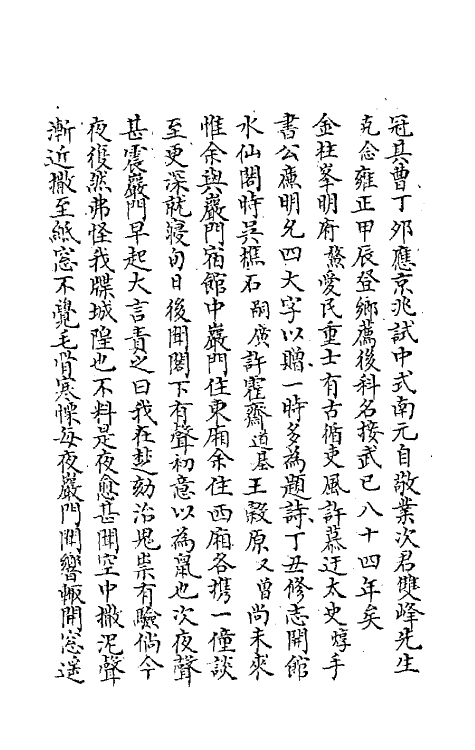 冠其曹丁夘應京兆試中式南元自敬業次君雙峰先生
克念雍正甲辰登鄉薦後科名接武已八十四年矣
金柱峯明府鰲愛民重士有古循吏風許慕迂太史焞手
書公廉明允四大字以贈一時多為題詩丁丑修志開館
水仙閣時吳樵石嗣廣許霍齋道基王穀原又曾尚未來
惟余與巖門宿館中巖門住東廂余住西廂各携一僮談
至更深就寢旬日後聞閣下有聲初意以為鼠也次夜聲
甚震巖門早起大言責之曰我在楚劾治鬼祟有驗倘今
夜復然弗怪我牒城隍也不料是夜愈甚聞空中撒泥聲
漸近撒至紙窓不覺毛骨寒慄每夜巖門聞響輙開窓遙